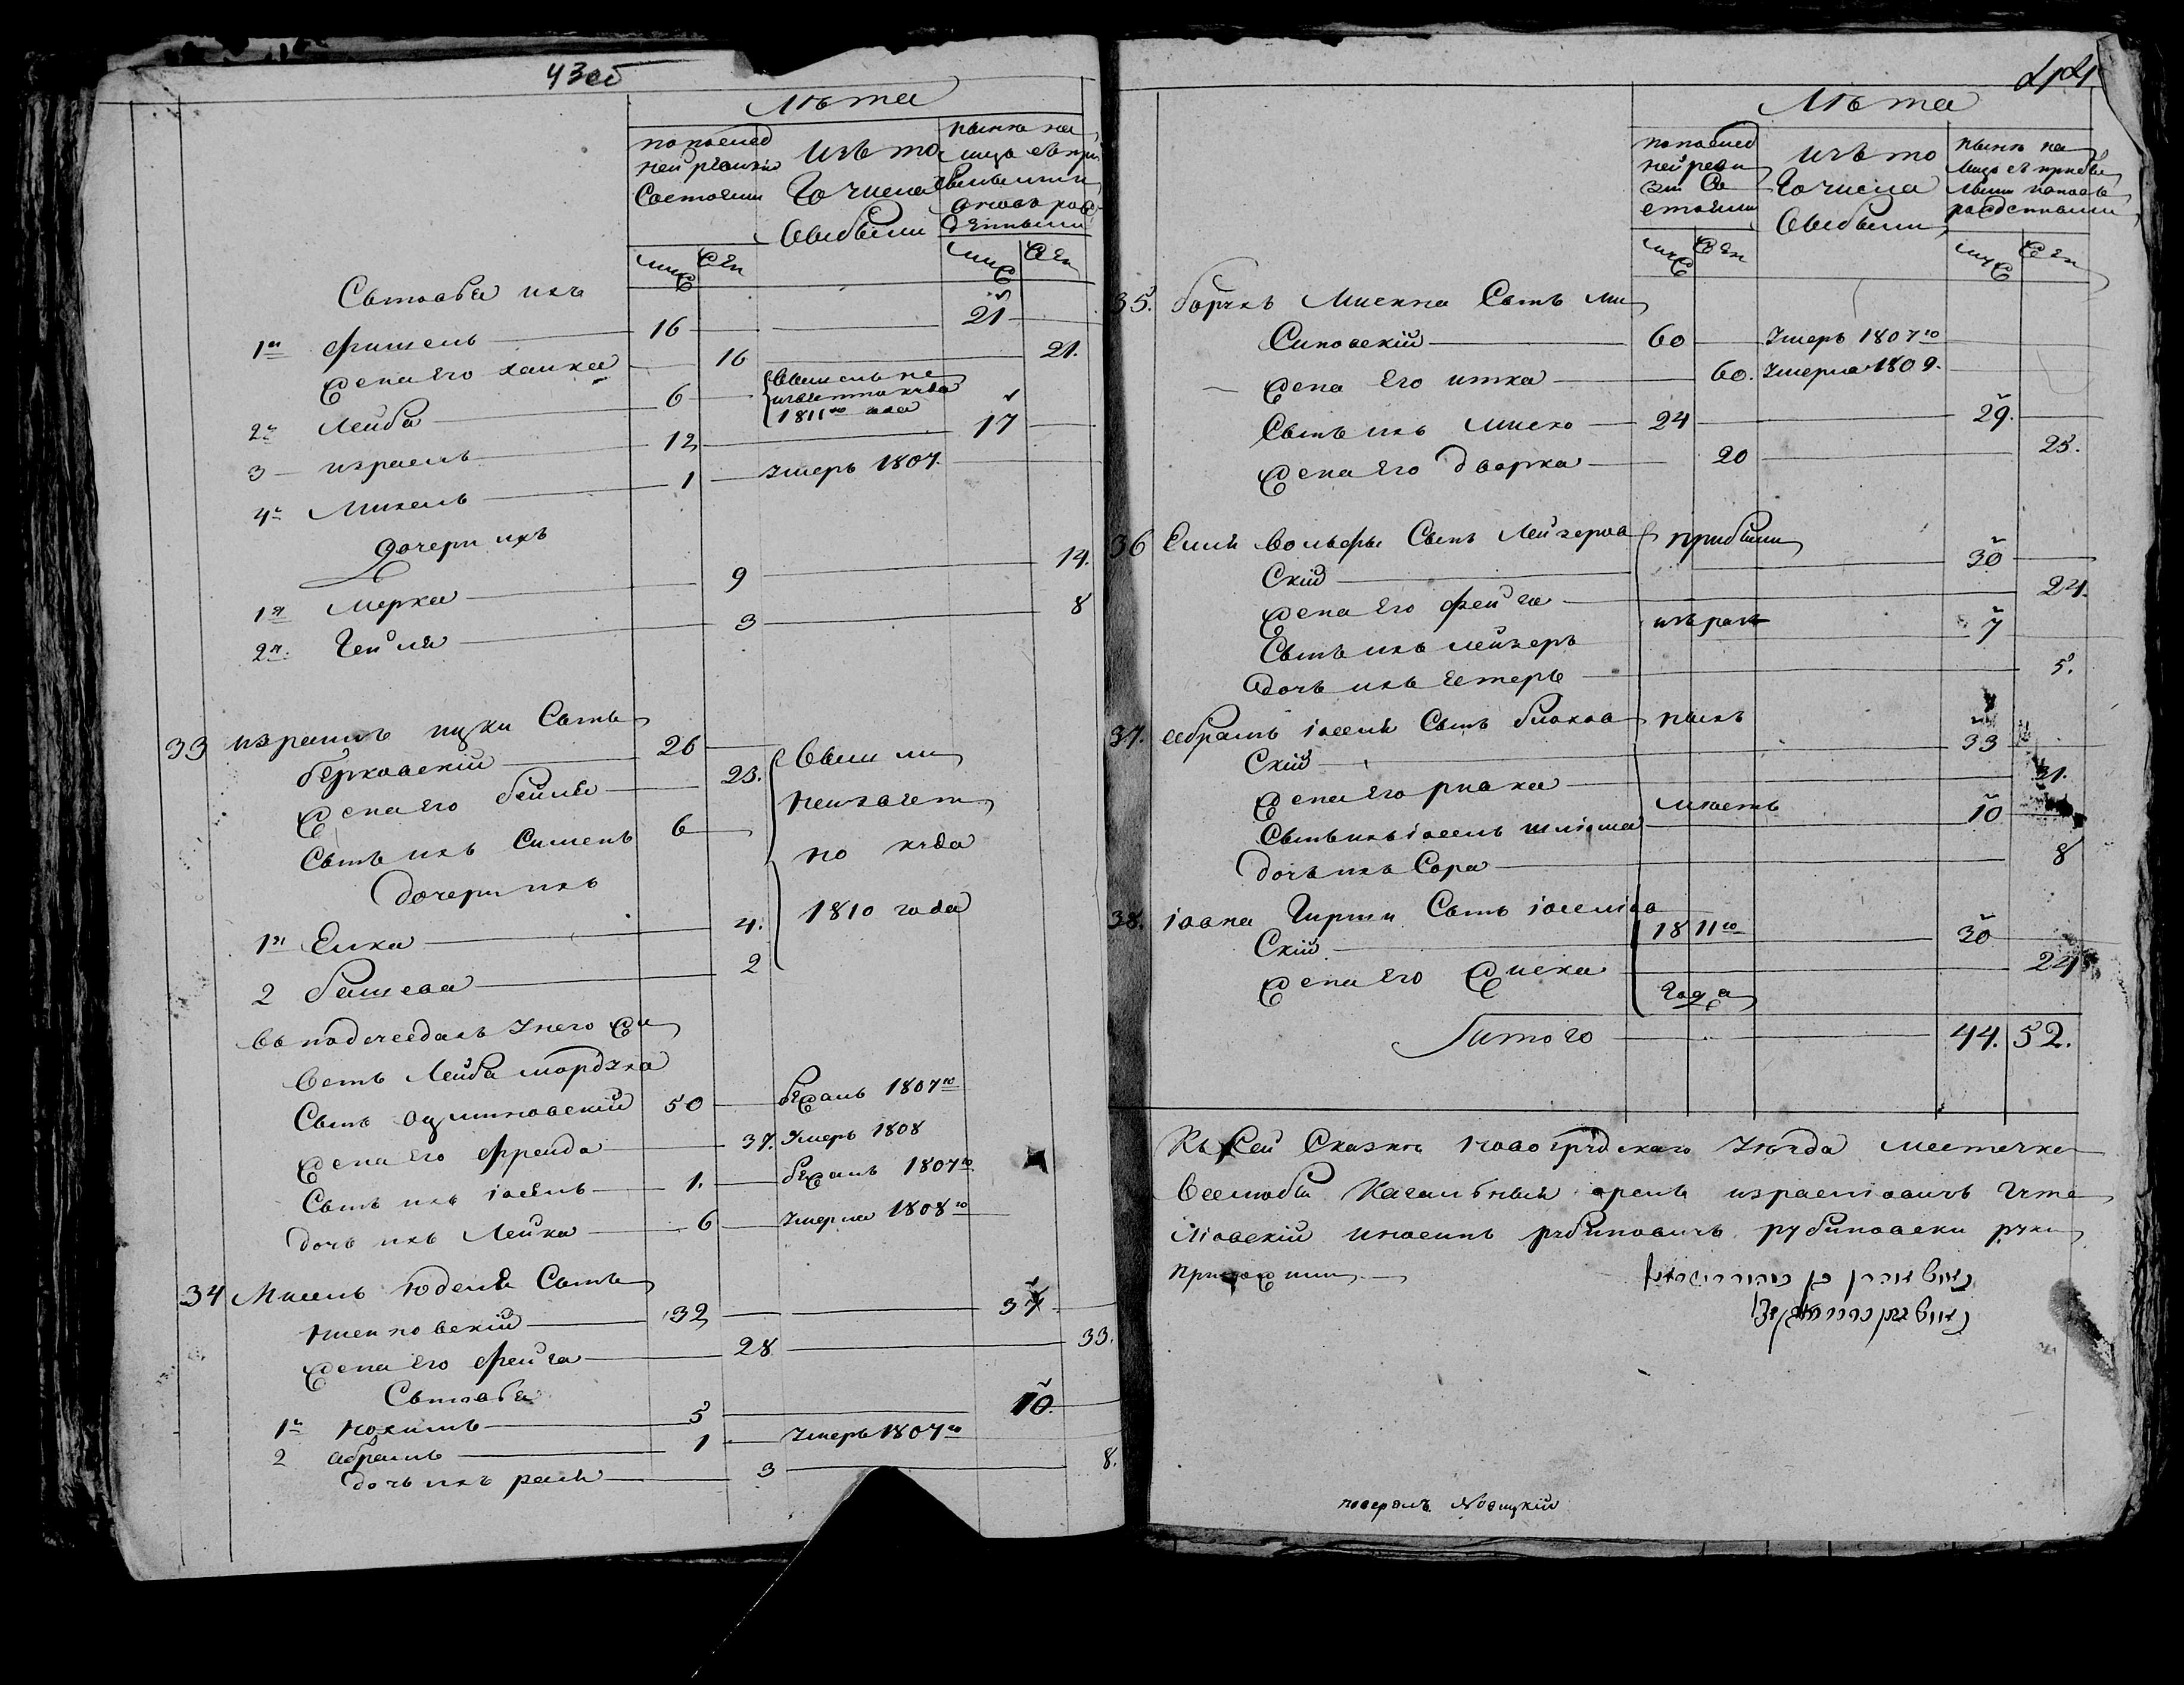 43 об
Лѣта
по послед
ней ревизіи
Состояли
Изъ то
Го числа
Выбыли
нынѣ на
лицо съ при
былыми
и новорож
денными
муж
жен
муж
жен
Сыновья ихъ
1й Фишель 16 21
Жена Его Ханка 16 21.
2й Лейба 6 вышелъ не
извѣстно куда
1811го года
3 Израель 12 17
4й Михель 1 умеръ 1807.
Дочери ихъ
1я Мерка 9 14.
2я Гейля 3 8
33 Израиль Ицки Сынъ
Берковскій 26
Жена Его Бейля 23.
Вышли
неизвест
но куда
1810 года
Сынъ ихъ Симень 6
Дочери ихъ
1я Елка 4.
2 Башева 2
въ подсседахъ Унего Жи
веть Лейба Мордуха
Сынъ 50 бежалъ 1807го
Жена Его Фрейда 37. Умеръ 1808
Сынъ ихъ Іосель 1. бежалъ 1807го
дочь ихъ Лейка 6 умерла 1808го
34 Мисель Юделя Сынъ
32 37
Жена Его Фейга 28 33.
Сыновья
1й Нохимъ 5 10.
2 Абрамъ 1 Умеръ 1807го
дочь ихъ Раля 3 8.
44
Лѣта
по послед
ней реви
зіи Со
стояли
Изъ то
Го числа
Выбыли
нынѣ на
лицо съ прибы
лыми и новь
рожденными
муж
жен
муж
жен
35. Борухъ Миски Сынъ Ми
Синовскій 60 Умеръ 1807го
Жена Его Итка 60. Умерла 1809.
Сынъ ихъ Миско 24 29.
Жена Его Дворка 20 25.
36 Еля Вольфы Сынъ Лейзеров
Скій 30
прибыли
Жена Его Фейга 24.
Сынъ ихъ Лейзеръ изъ раз 7
Дочь ихъ Естеръ 5.
37. Абрамъ Іоселя Сынъ Блохов
ныхъ
Скій 33
Жена Его Ривка 31.
Сынъ ихъ Іосель Шліома мѣстъ 10
Дочь ихъ Сора 8
38. Іовна Гирши Сынъ Іоселіов
Скій 1811го 30
Жена Его Жиска 24
Года
Итого 44. 52.
Къ Сей Сказкѣ Новогрудскаго Уѣзда местечка
Вселюбы Кагальный Орель Израелiовичъ
Рубиновичъ Рубиновски руки
приложили
поверялъ Новицкій